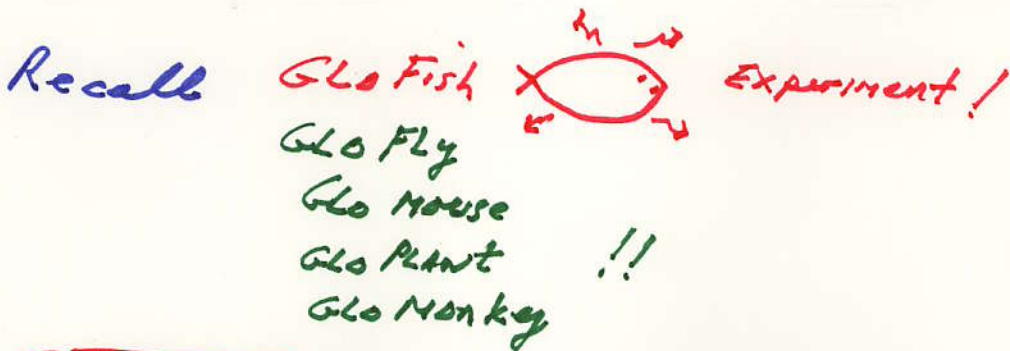 Recall GLO Fish Experiment!
GLO FLy
GLO Mouse
GLO PLANT !!
GLO Monkey